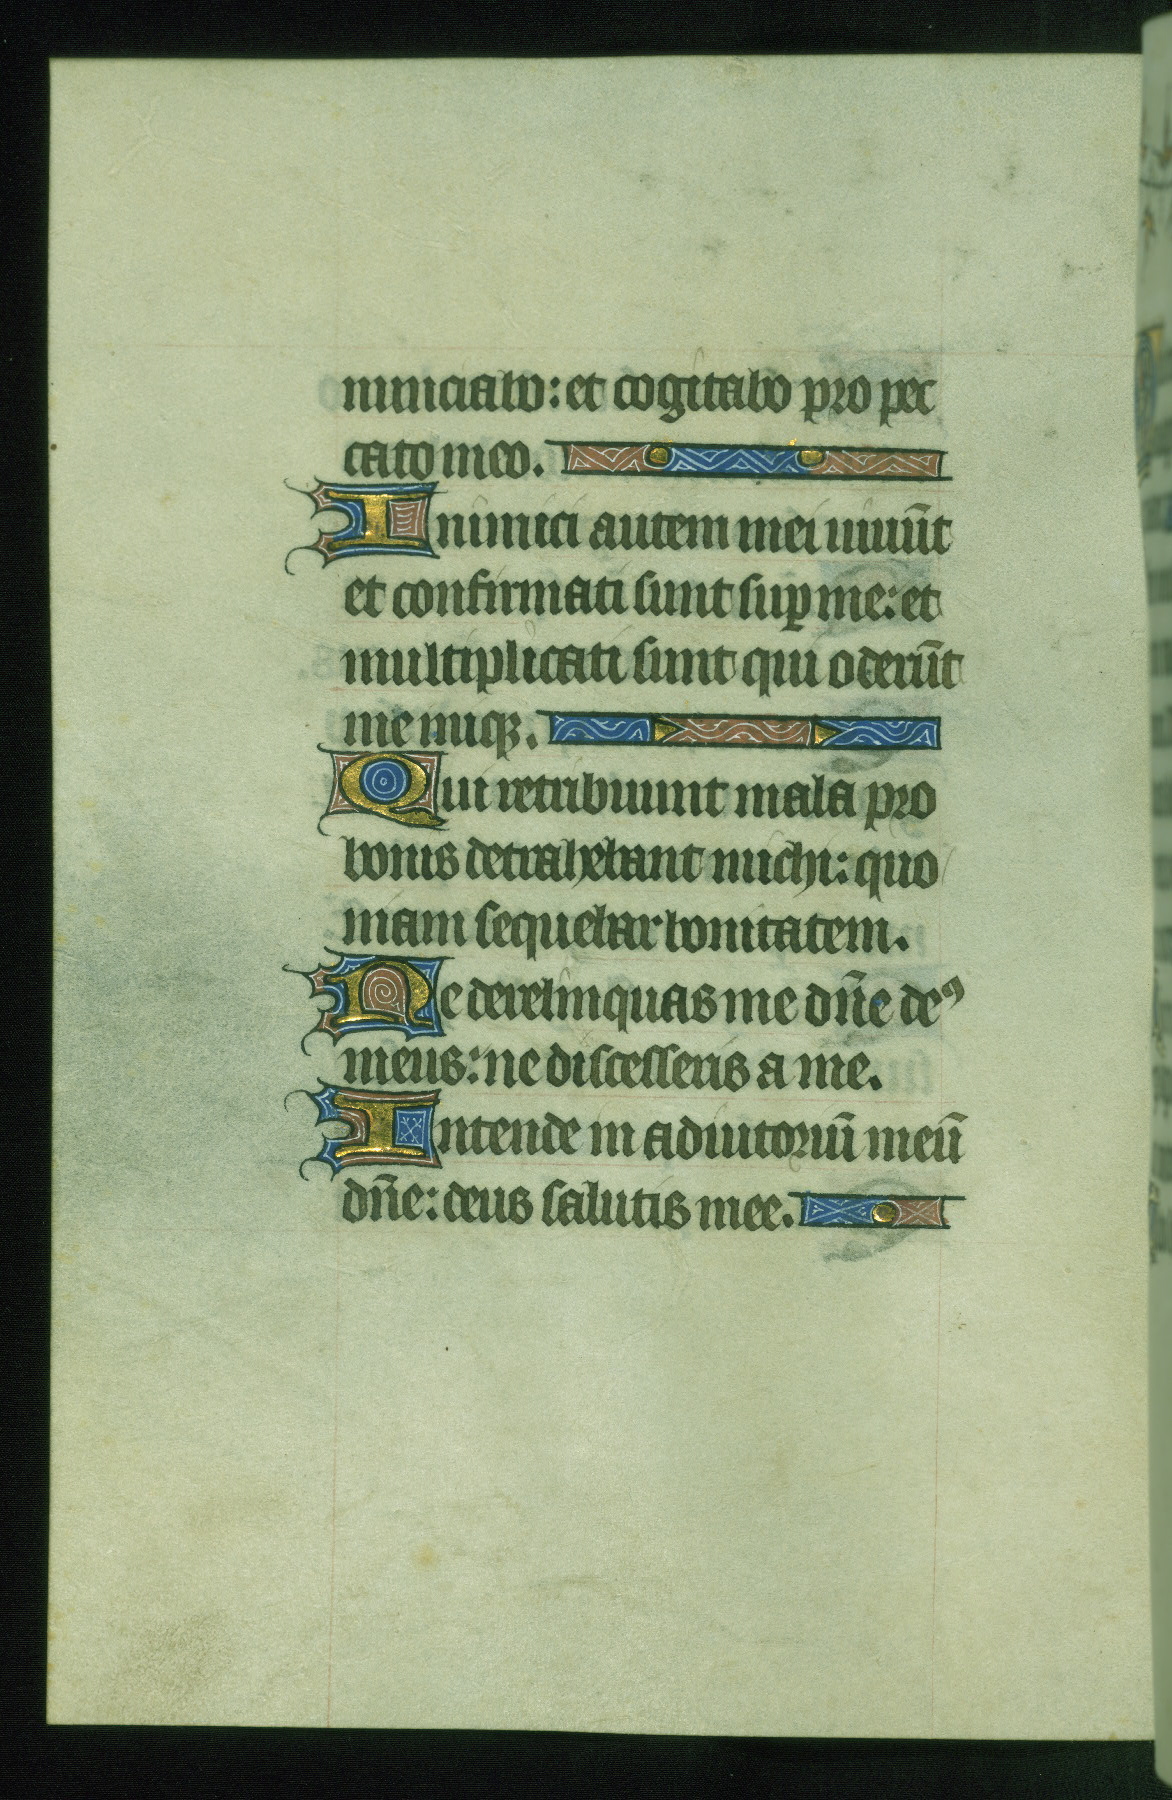 nunciabo: et cogitabo pro pec
cato meo.
Inimici autem mei uiuūt
et confirmati sunt suꝑ me: et
multiplicati sunt qui oderūt
me iniqꝫ.
Qui retribuunt mala pro
bonis detrahebant michi: quo
niam sequebar bonitatem.
Ne derelinquas me dn̄e deꝰ
meus: ne discesseris a me.
Intende in adiutoriū meū
dn̄e: deus salutis mee.